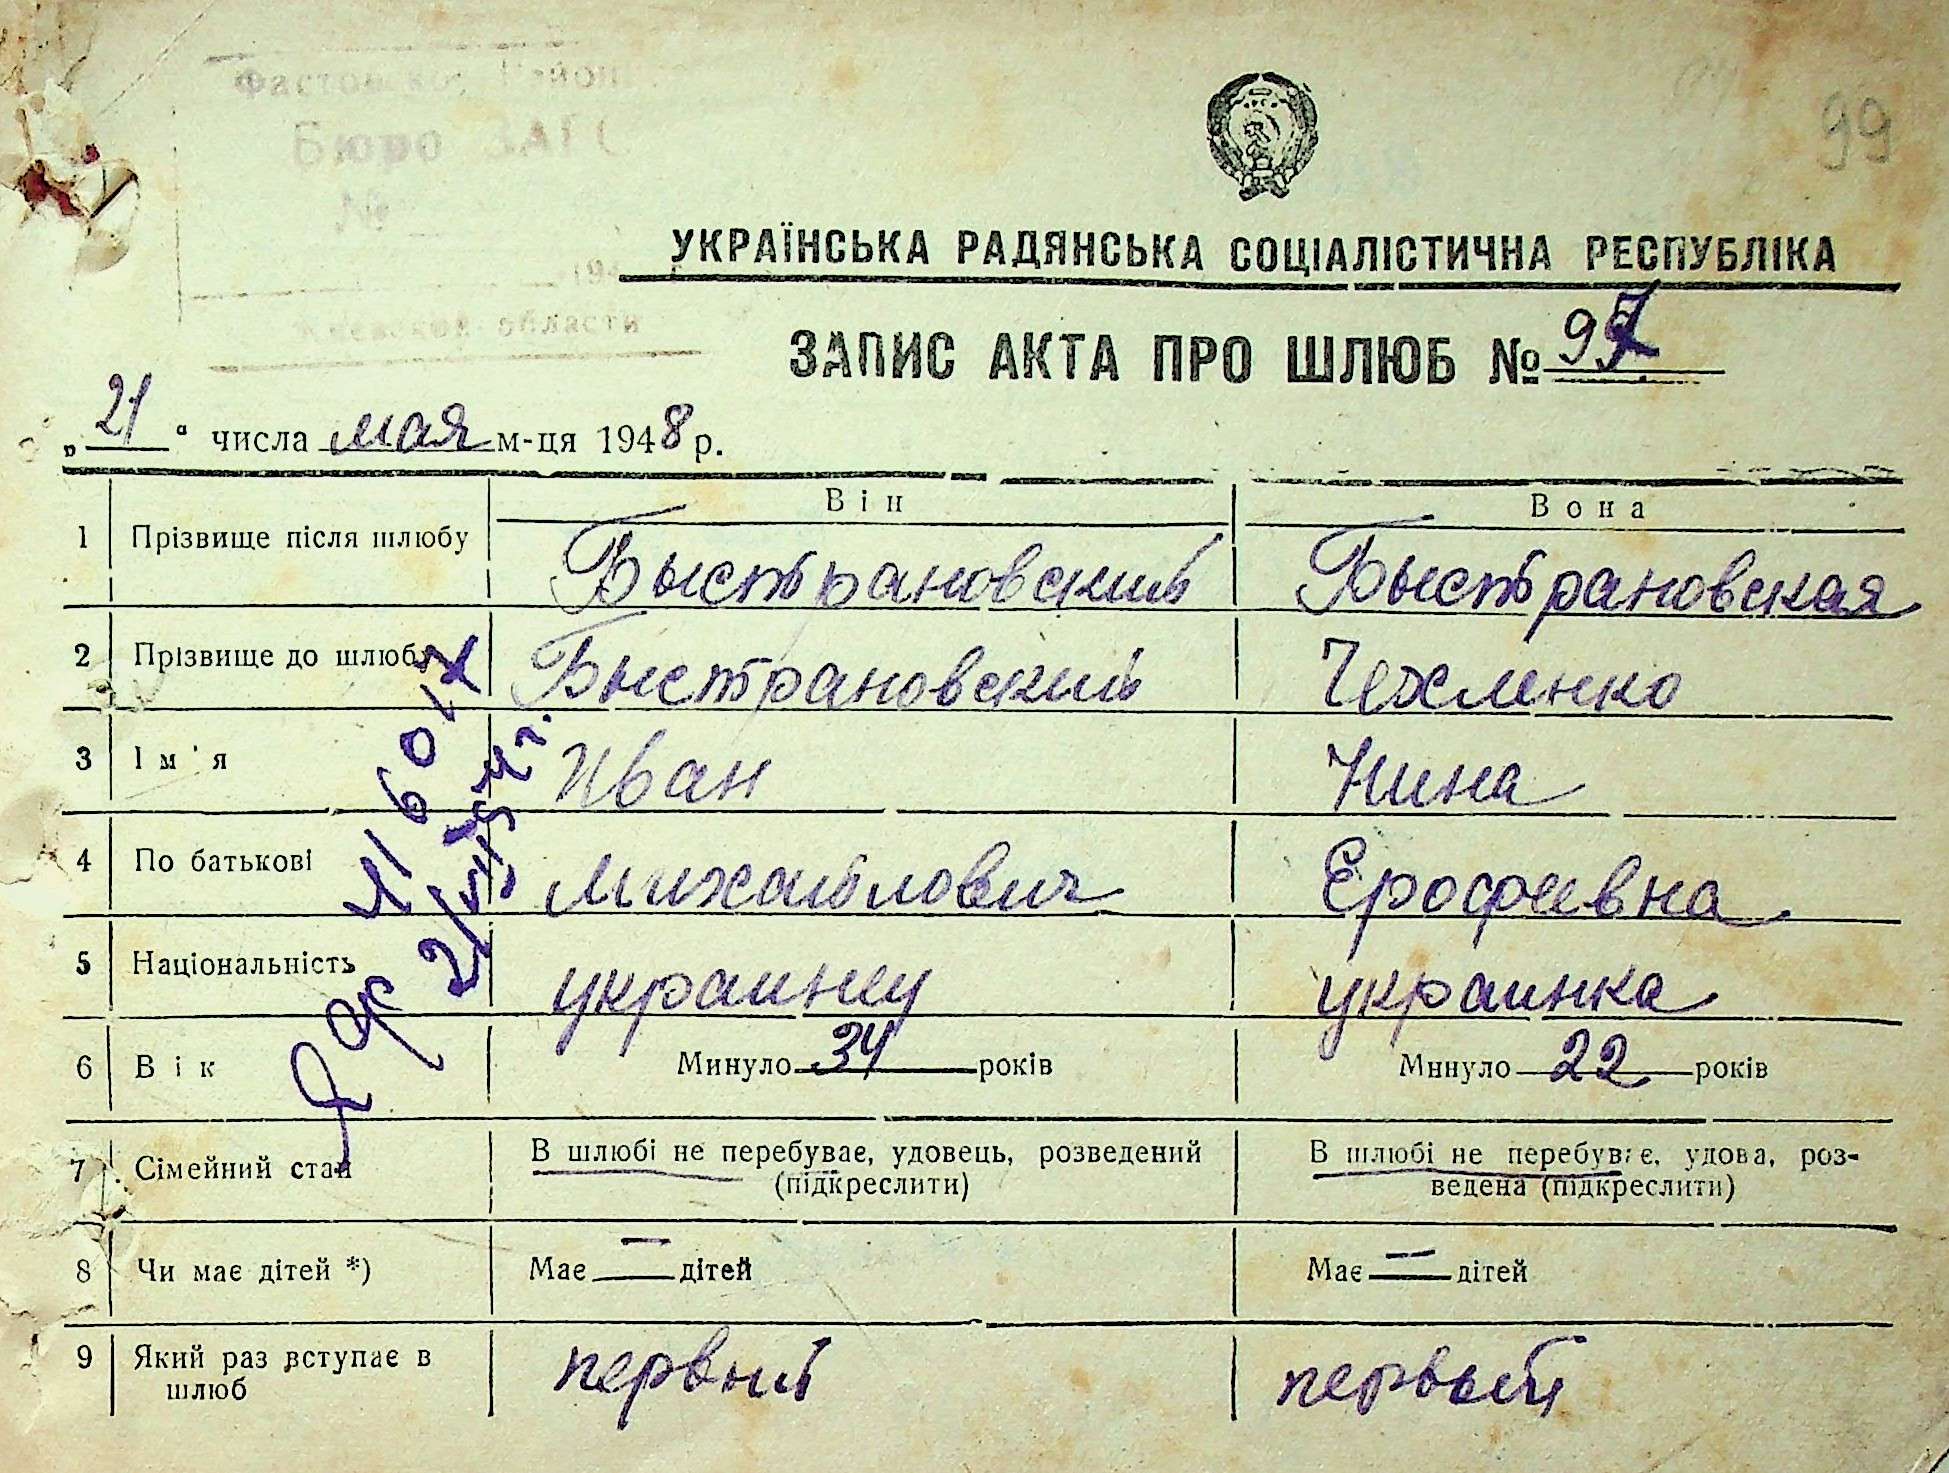 Бюро ЗАГС
№
194 г.
Киевской области
99
УКРАЇНСЬКА РАДЯНСЬКА СОЦІАЛІСТИЧНА РЕСПУБЛІКА
ЗАПИС АКТА ПРО ШЛЮБ № 97
„21“ числа мая м-ця 1948 р.
Він Вона
1 Прізвище після шлюбу Быстрановский Быстрановская
2 Прізвище до шлюбу Быстрановский Чехменко
3 Ім'я Иван Нина
4 По батькові Михайлович Ерофеевна
5 Національність украинец украинка
6 Вік Минуло 34 років Минуло 22 років
7 Сімейний стан В шлюбі не перебуває, удовець, розведений (підкреслити) В шлюбі не перебуває, удова, роз-
ведена (підкреслити)
8 Чи має дітей *) Має — дітей Має — дітей
9 Який раз вступає в шлюб первый первый